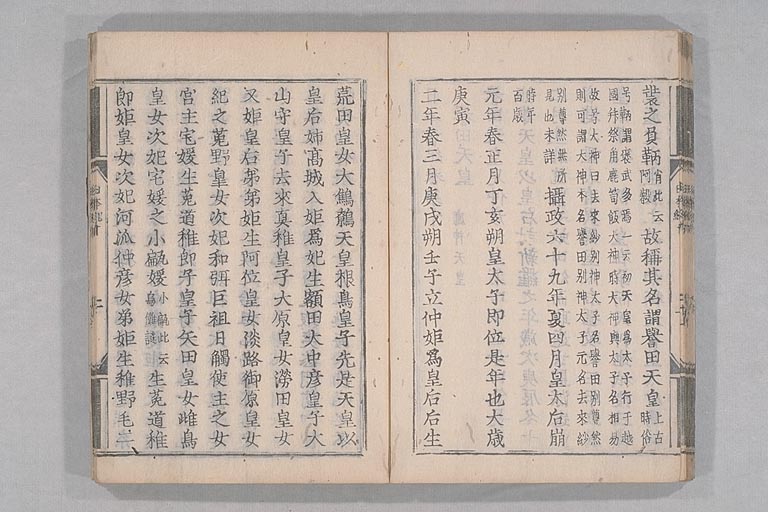 裳之負鞆肖此云阿叡故稱其名謂譽田天皇上古時俗
号鞆謂褒武多焉一云初天皇爲太子行于越
國拜祭角鹿笥飯大神時大神與太子名相易
故号大神曰去來紗別神太子名譽田別尊然
則可謂大神本名譽田別神太子元名去來紗
別尊然無所見也未詳攝政六十九年夏四月皇太后崩
時年百歲
元年春正月丁亥朔皇太子即位是年也大歲
庚寅
二年春三月庚戌朔壬子立仲姫爲皇后后生
荒田皇女大鷦鷯天皇根鳥皇子先是天皇以
皇后姉高城入姫爲妃生額田大中彦皇子大
山守皇子去來真稚皇子大原皇女澇田皇女
又妃皇后弟弟姫生阿位皇女淡路御原皇女
紀之菟野皇女次妃和弭臣祖日觸使主之女
宮主宅媛生菟道稚郎子皇子矢田皇女雌鳥
皇女次妃宅媛之小甂媛小甂此云烏儺謎生菟道稚
郎姫皇女次妃河派仲彦女弟姫生稚野毛二